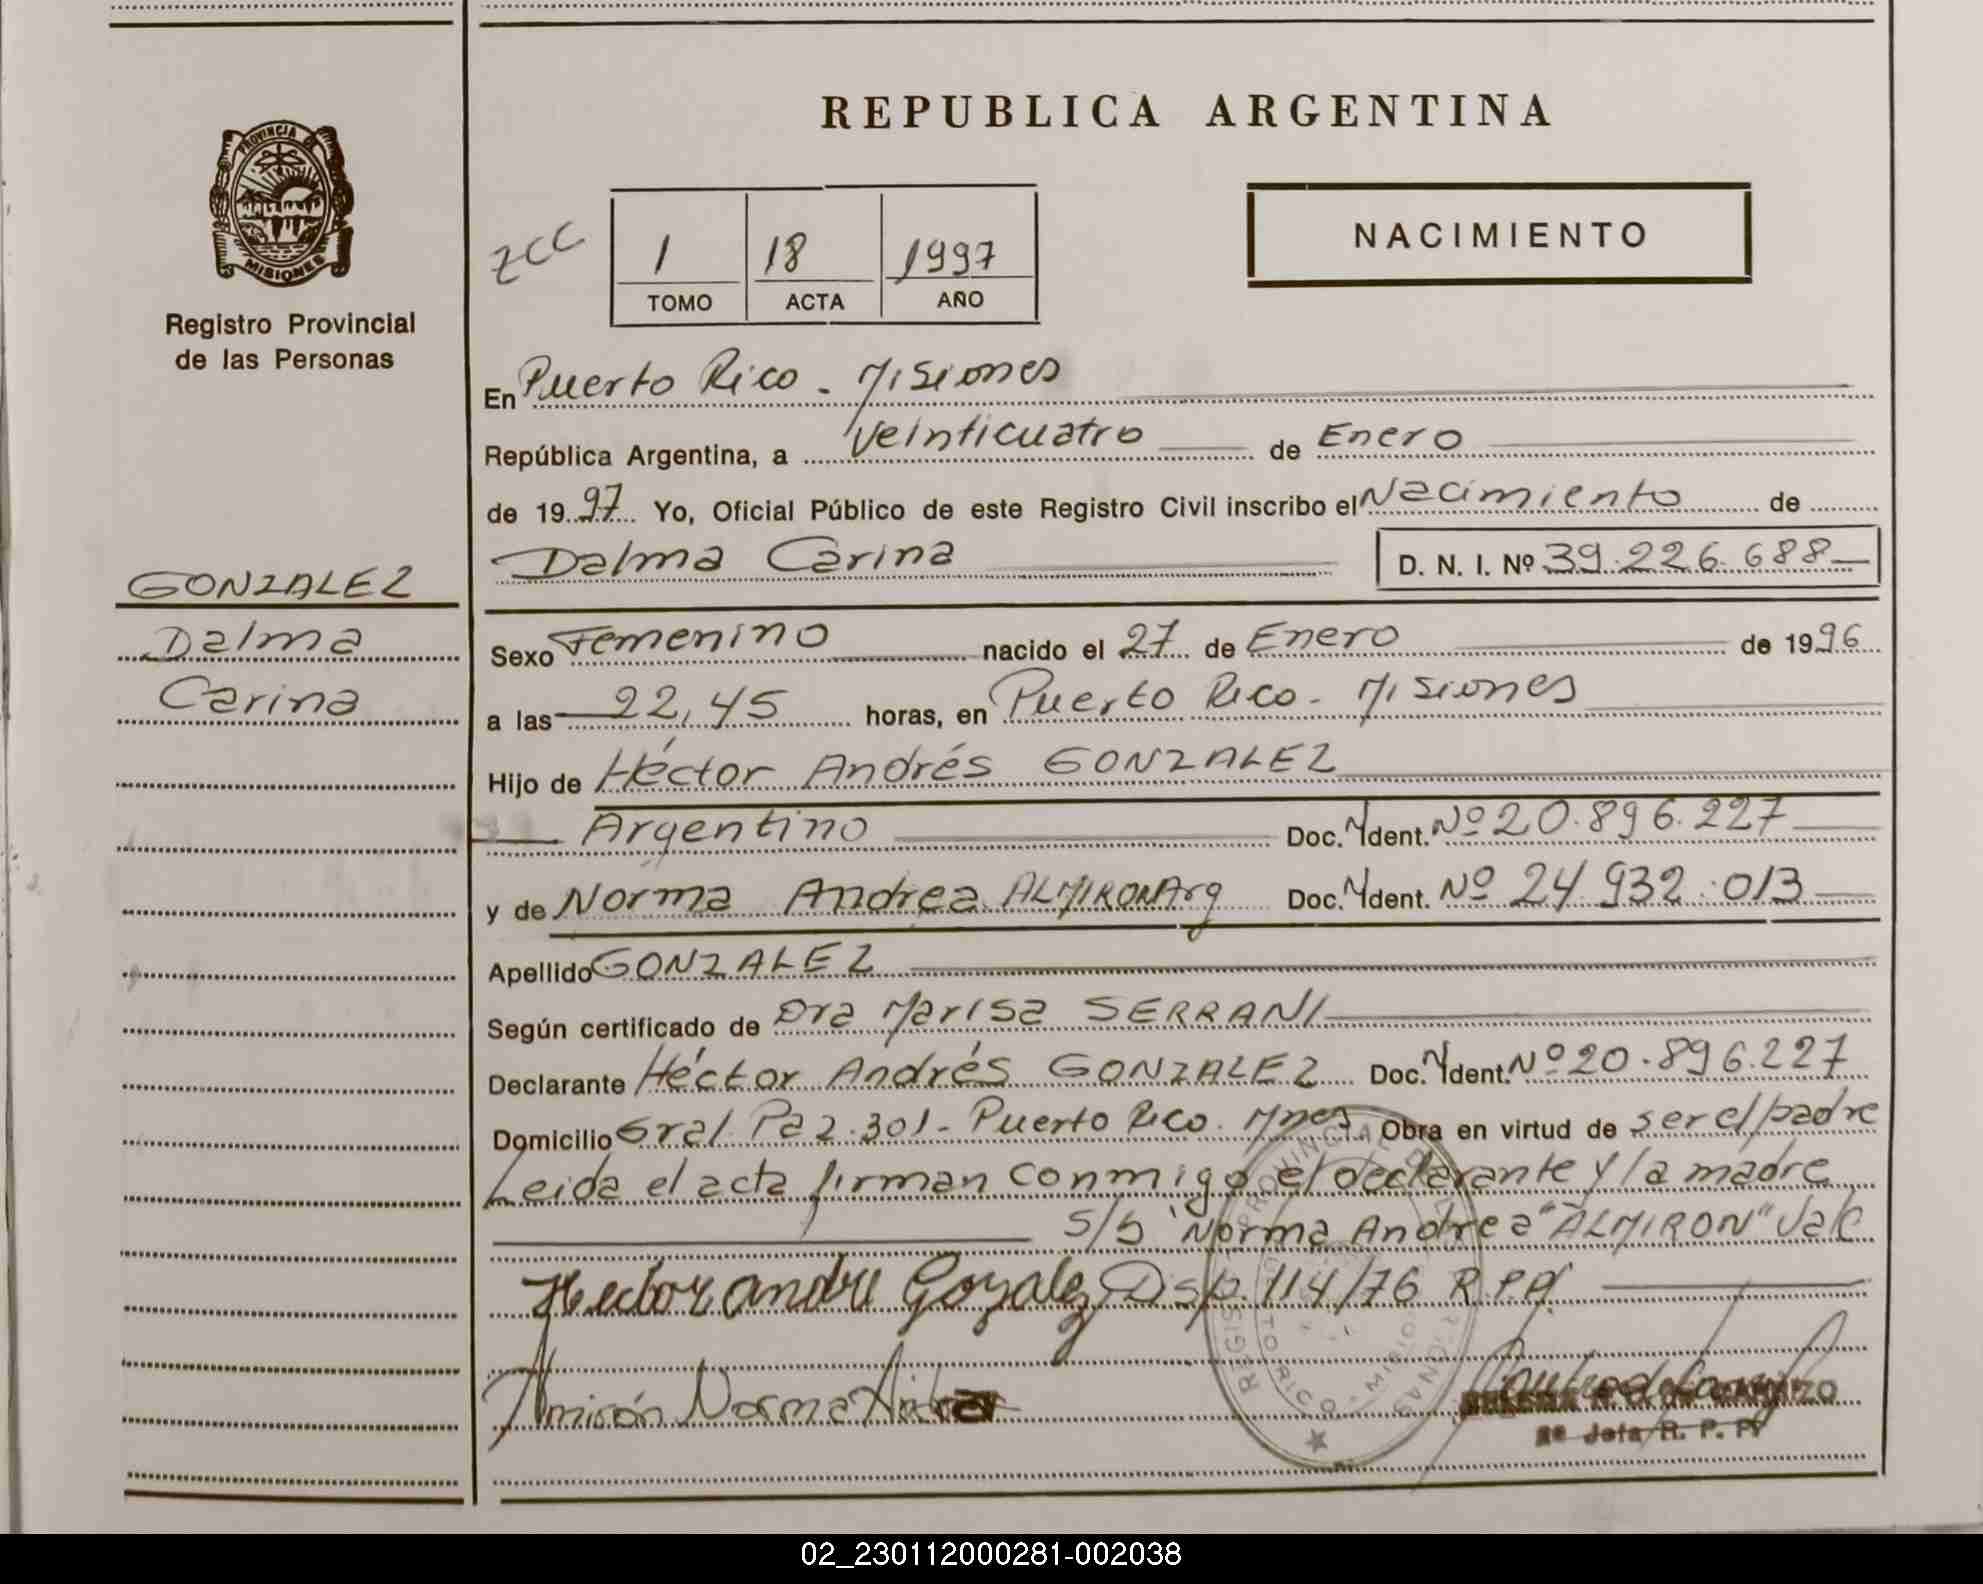 REPUBLICA ARGENTINA
PROVINCIA DE
MISIONES
Registro Provincial
de las Personas
ZCC
1 18 1997
TOMO ACTA AÑO
NACIMIENTO
En Puerto Rico - Misiones
República Argentina, a Veinticuatro de Enero
de 1997 Yo, Oficial Público de este Registro Civil inscribo el Nacimiento de
Dalma Carina D. N. I. Nº 39.226.688
GONZALEZ
Dalma
Carina
Sexo Femenino nacido el 27 de Enero de 1996
a las 22,45 horas, en Puerto Rico - Misiones
Hijo de Héctor Andrés GONZALEZ
Argentino Doc. Ident. Nº 20.896.227
y de Norma Andrea ALMIRON Arg Doc. Ident. Nº 24.932.013
Apellido GONZALEZ
Según certificado de Dra Marisa SERRANI
Declarante Héctor Andrés GONZALEZ Doc. Ident. Nº 20.896.227
Domicilio Gral Paz 301 - Puerto Rico. Mnes. Obra en virtud de ser el padre
Leida el acta firman conmigo el declarante y la madre
S/b Norma Andrea "ALMIRON" Vale
Hector andre Gozalez Disp. 114/76 R.P.P.
Almirón Norma
2º Jefa R. P. P.
02_230112000281-002038